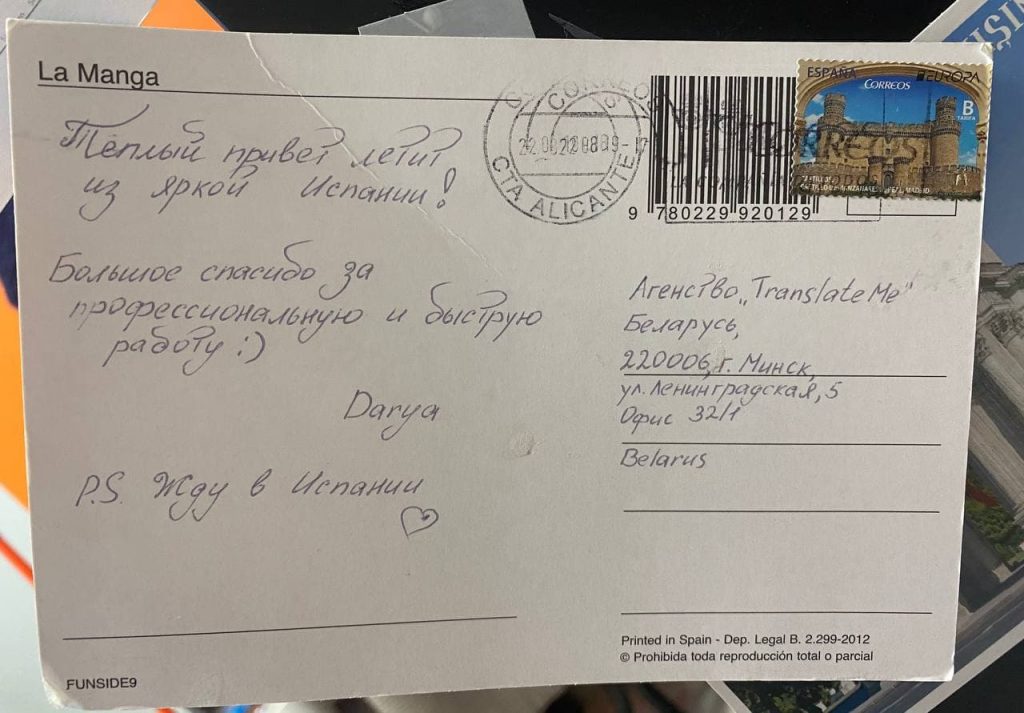 La Manga
Тёплый привет летит
из яркой Испании!
Большое спасибо за
профессиональную и быструю
работу :)
Darya
P.S. Жду в Испании
♡
FUNSIDE9
CORREOS
CTA ALICANTE
9 780229 920129
ESPAÑA
CORREOS
EUROPA
B
TARIFA
Агенство „Translate Me"
Беларусь,
220006, г. Минск,
ул. Ленинградская, 5
Офис 32/1
Belarus
Printed in Spain - Dep. Legal B. 2.299-2012
© Prohibida toda reproducción total o parcial